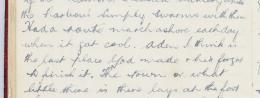 the harbour simply swarms with them
Had a route march ashore each day
when it got cool. Aden I think is
the last place God made & then forgot
to finish it. The town or what
little there is there lays at the foot